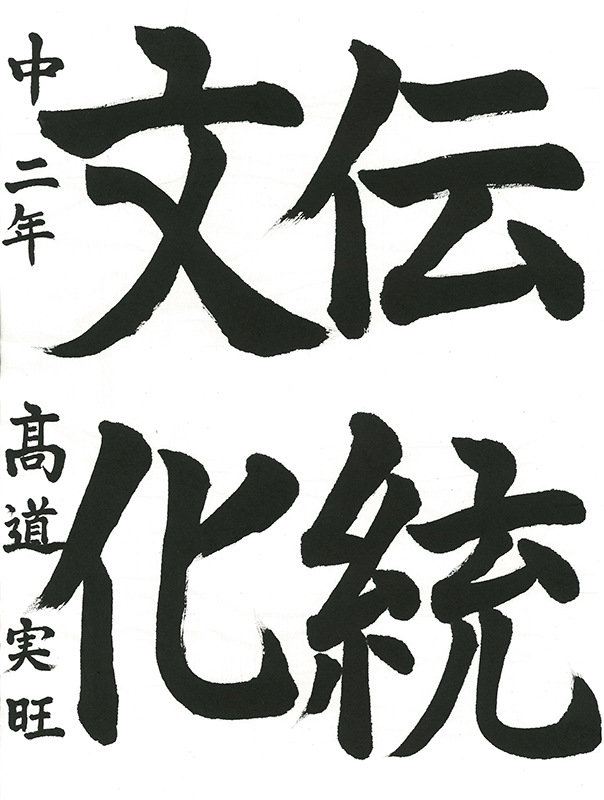 伝統
文化
中二年 髙道実旺